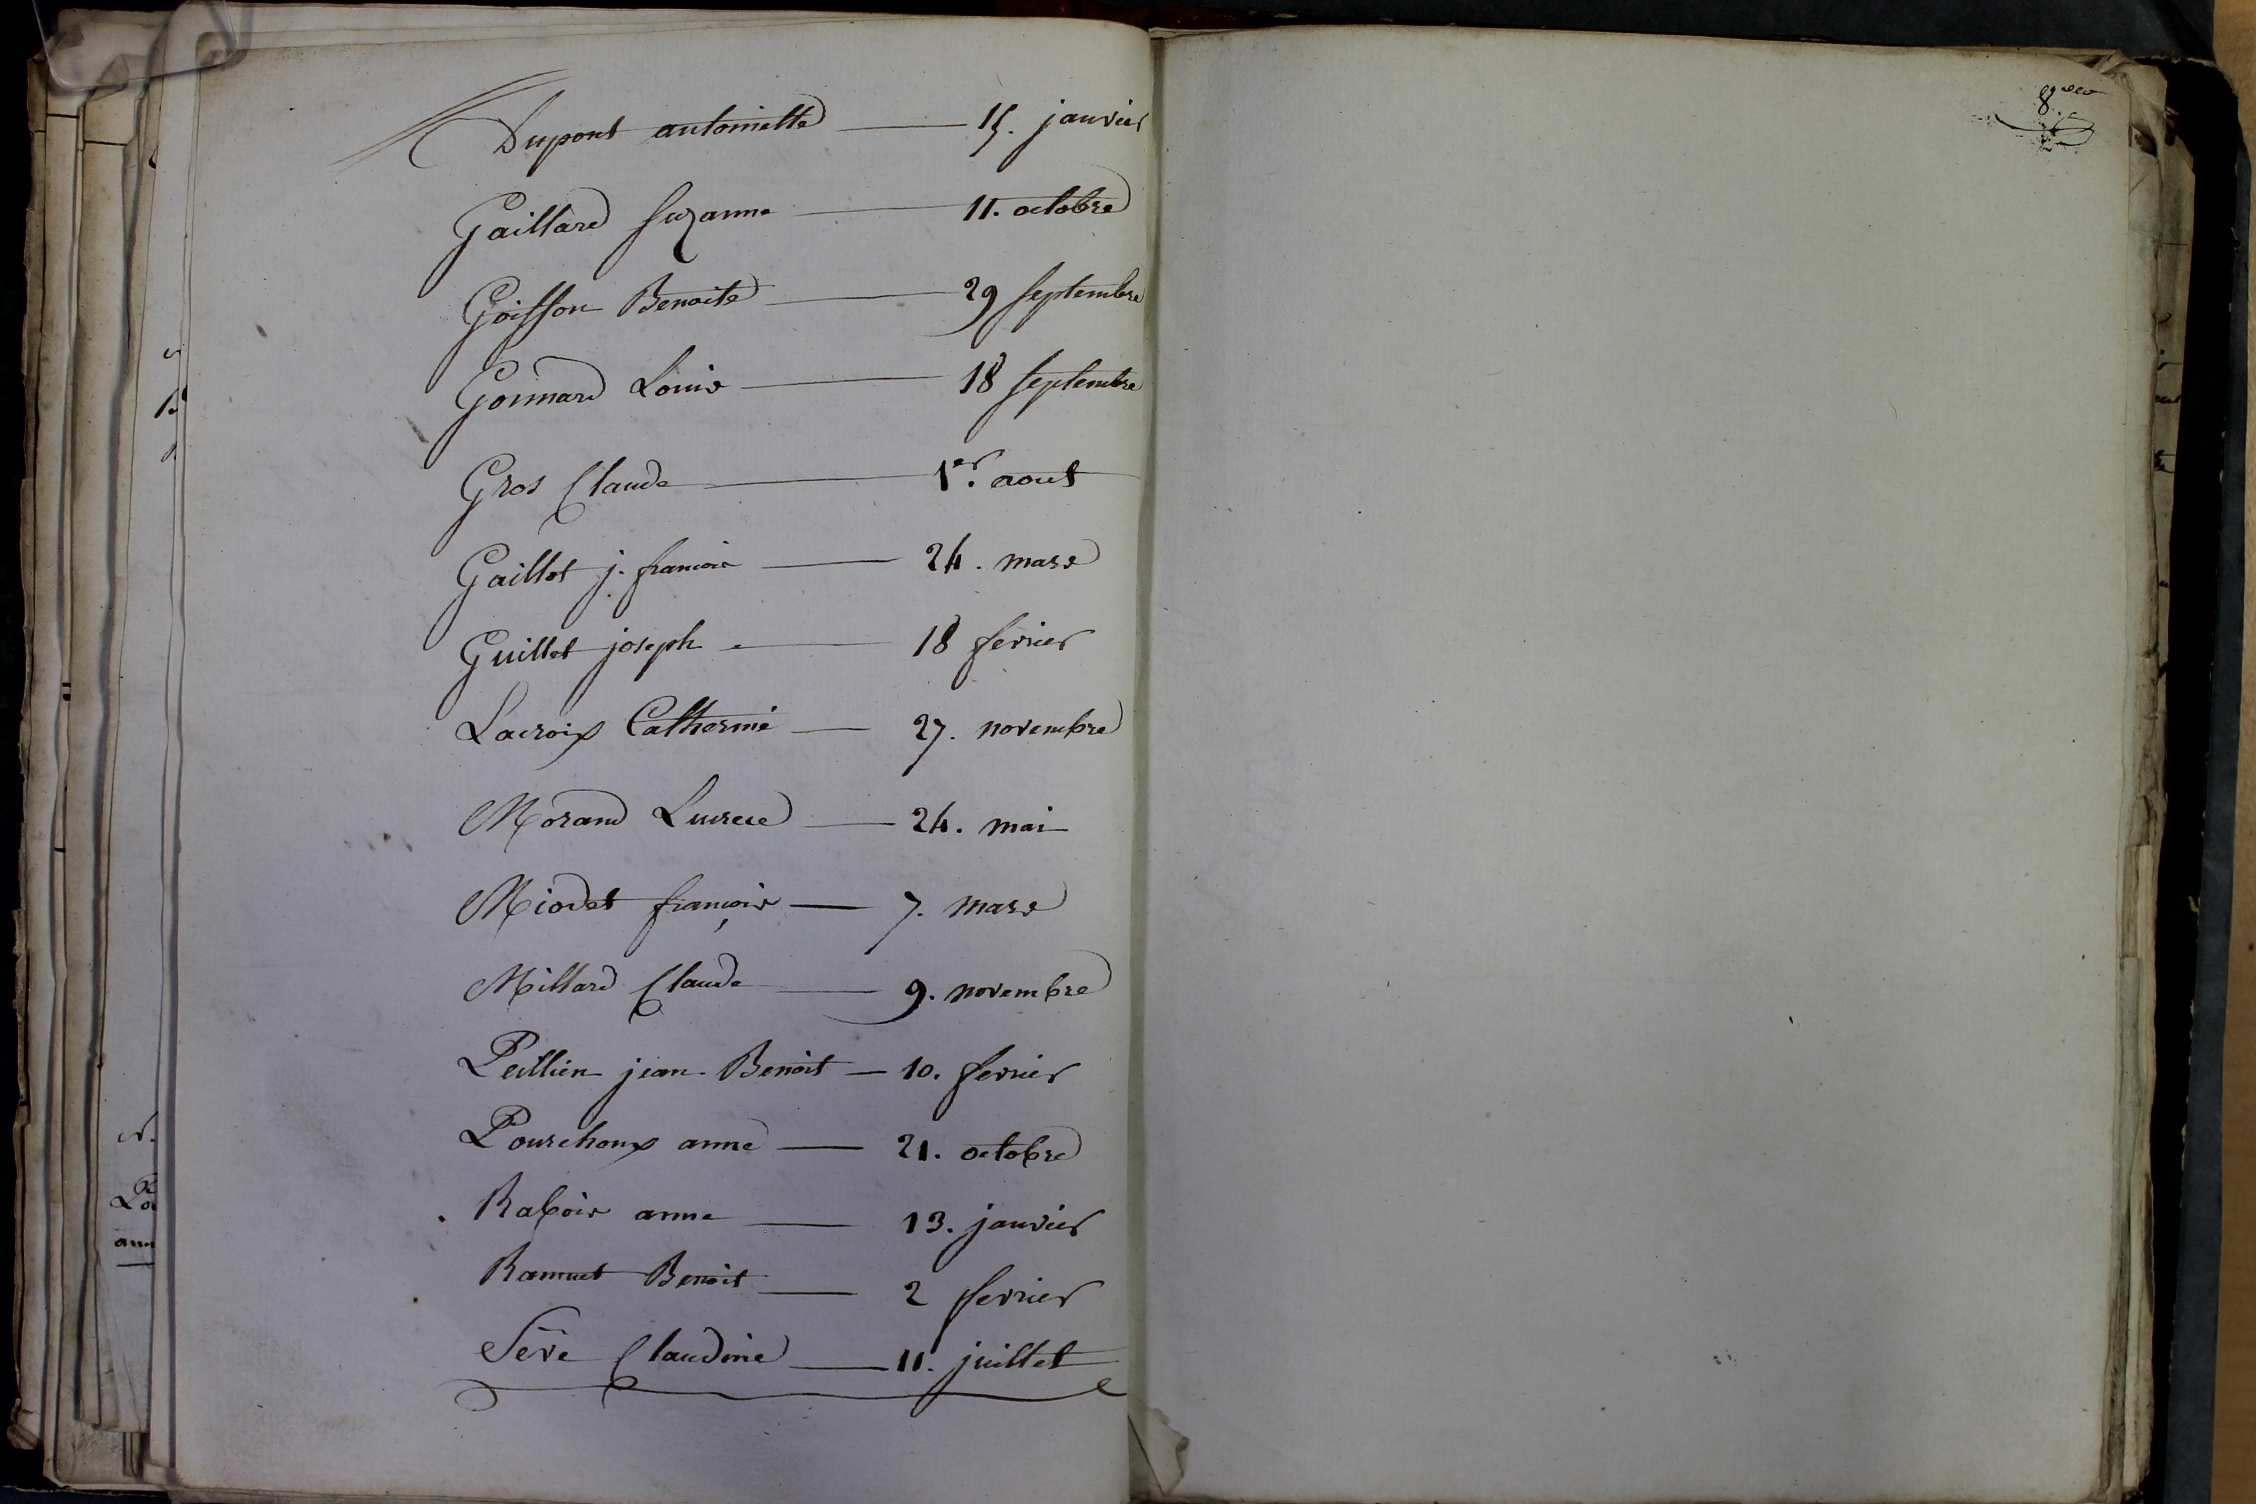 Dupont antoinette — 15. janvier
Gaillard suzanne — 11. octobre
Goisson Benoite — 29 septembre
Gonnard Louis — 18 septembre
Gros Claude — 1er. aout
Gaillot j. francois — 24. mars
Guillet joseph — 18 fevrier
Lacroix Catherine — 27. novembre
Morand Lucrece — 24. mai
Miodet françois — 7. mars
Millard Claude — 9. novembre
Peillien jean Benoit — 10. fevrier
Pourchoux anne — 21. octobre
Raboir anne — 13. janvier
Ramuet Benoit — 2 fevrier
Sève Claudine — 11. juillet